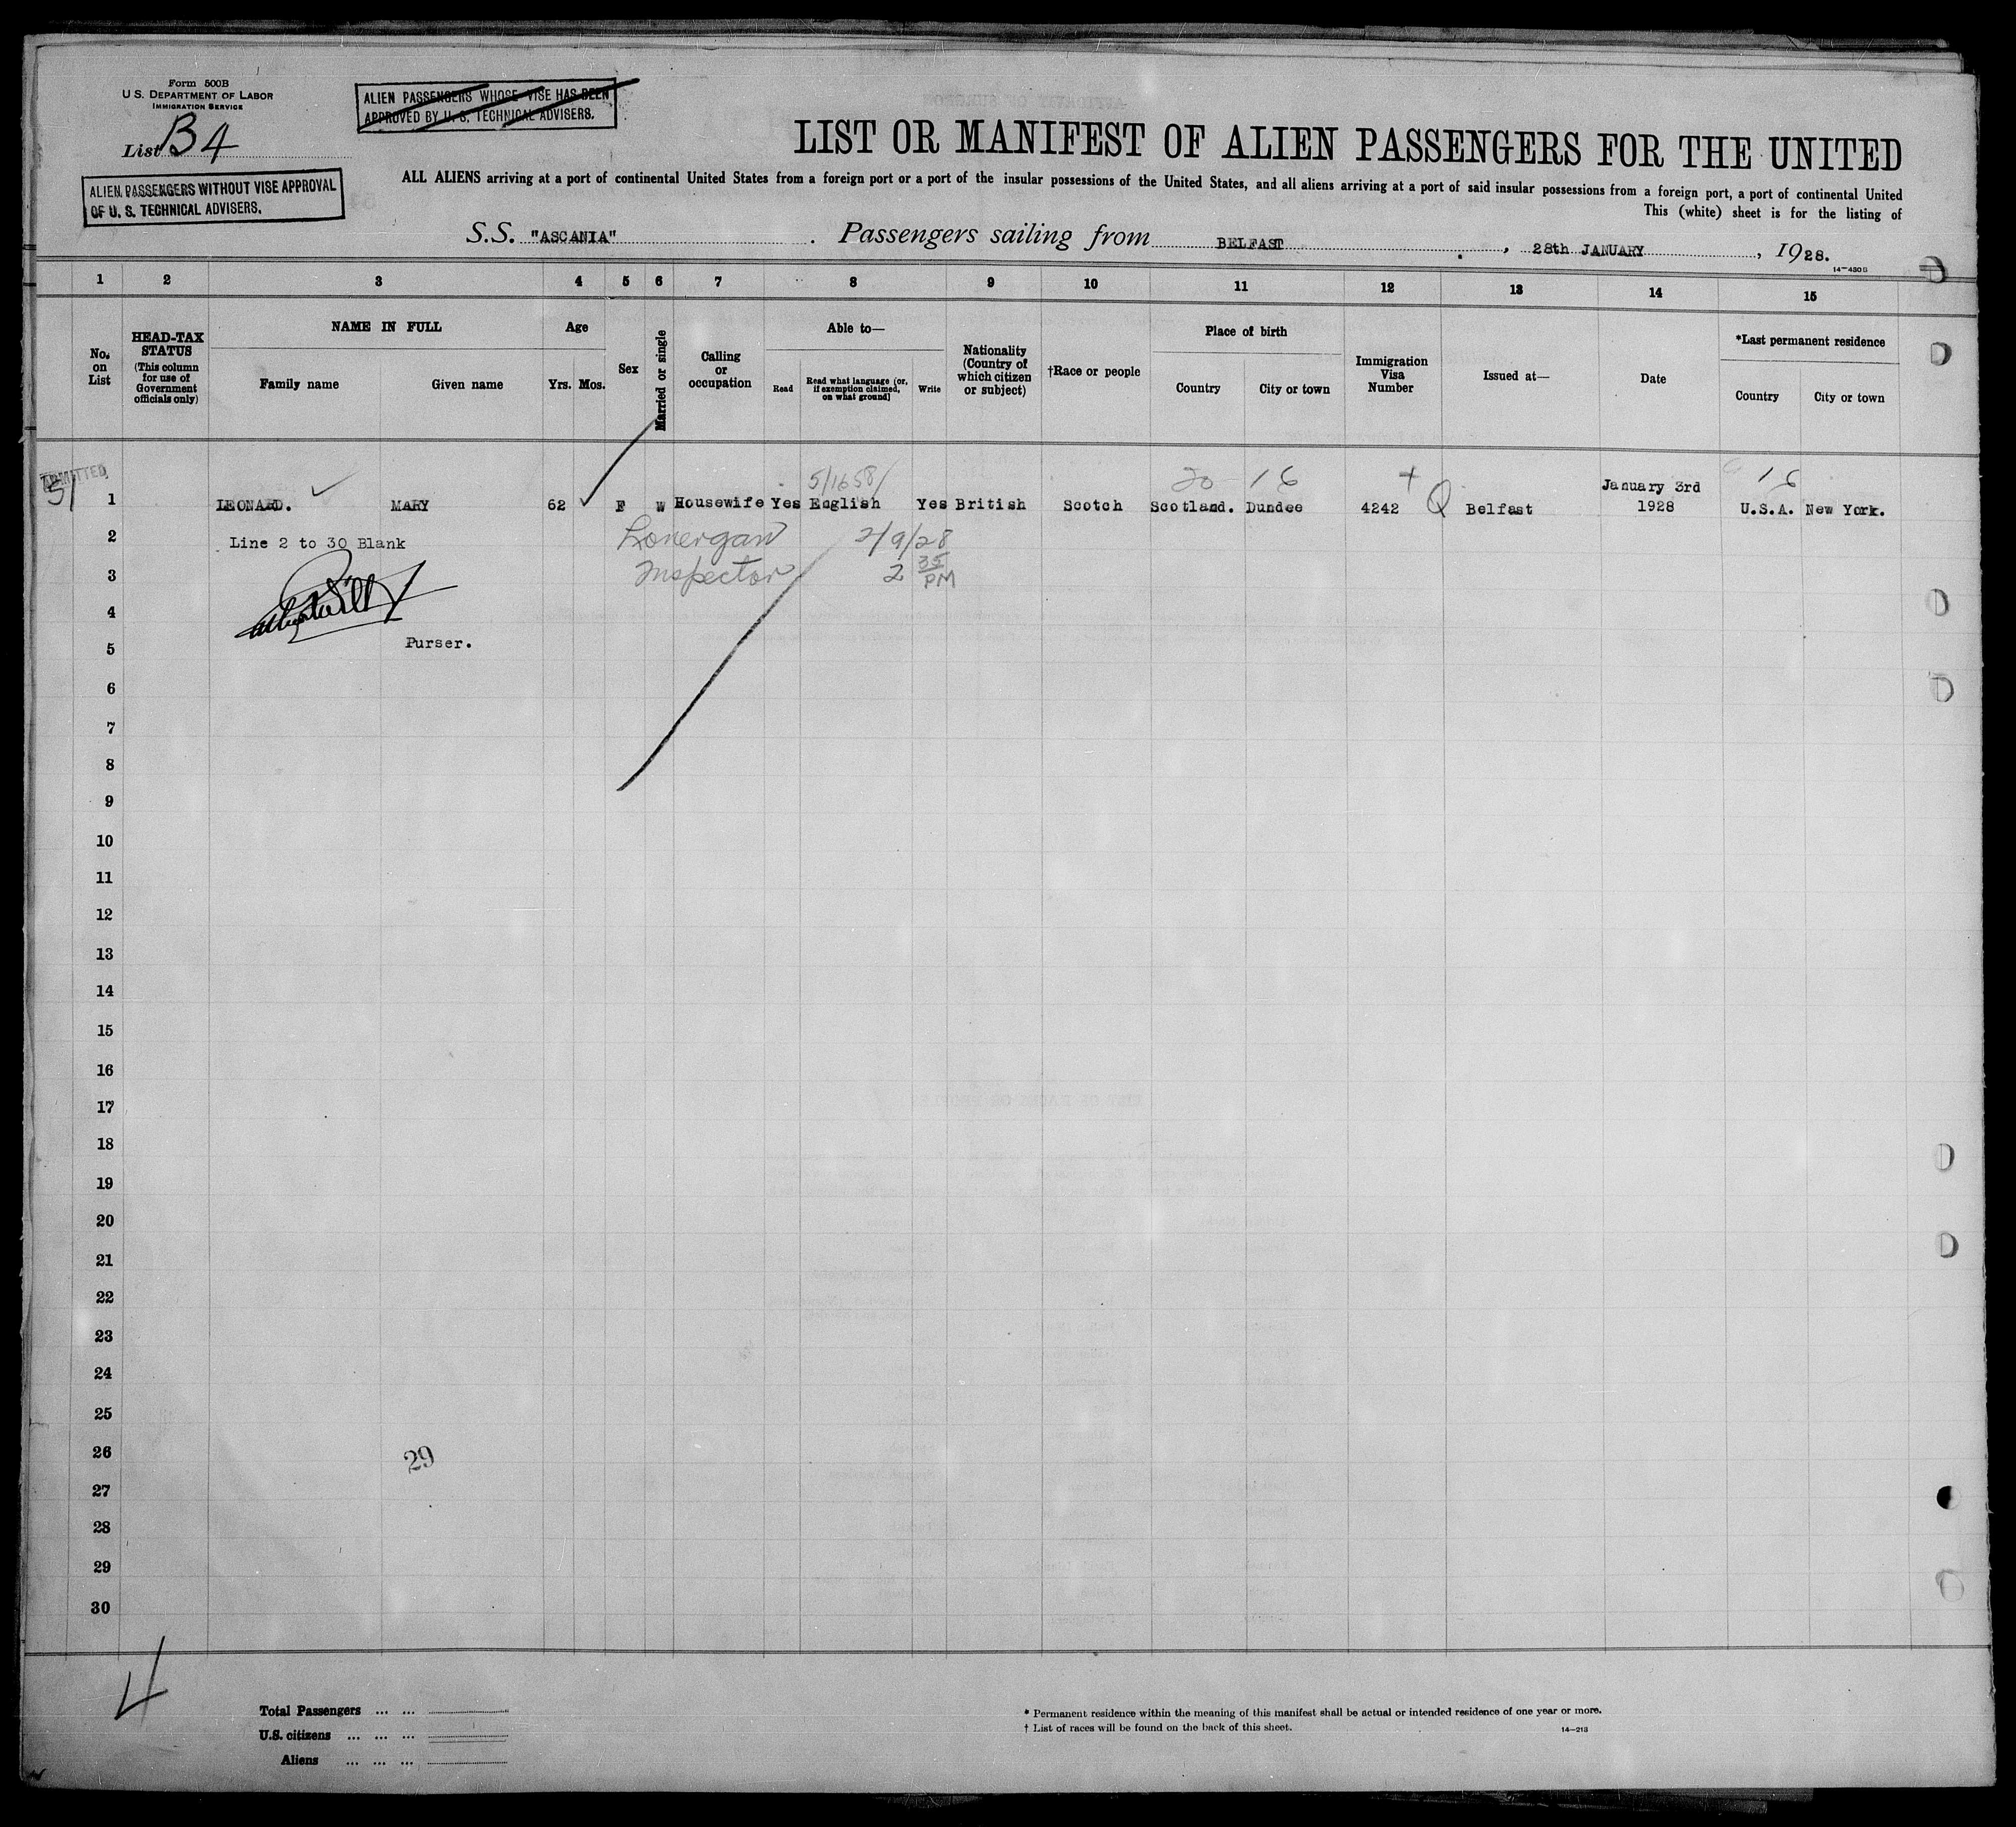 Form 500B
U.S. DEPARTMENT OF LABOR
IMMIGRATION SERVICE
List B4
ALIEN PASSENGERS WHOSE VISE HAS BEEN
APPROVED BY U. S. TECHNICAL ADVISERS.
ALIEN PASSENGERS WITHOUT VISE APPROVAL
OF U. S. TECHNICAL ADVISERS.
LIST OR MANIFEST OF ALIEN PASSENGERS FOR THE UNITED
ALL ALIENS arriving at a port of continental United States from a foreign port or a port of the insular possessions of the United States, and all aliens arriving at a port of said insular possessions from a foreign port, a port of continental United
This (white) sheet is for the listing of
S.S. "ASCANIA" . Passengers sailing from BELFAST , 28th JANUARY , 1928.
14-430B
1 2 3 4 5 6 7 8 9 10 11 12 13 14 15
No. on List
HEAD-TAX STATUS (This column for use of Government officials only)
NAME IN FULL
Family name Given name
Age
Yrs. Mos.
Sex
Married or single
Calling or occupation
Able to—
Read
Read what language (or, if exemption claimed, on what ground)
Write
Nationality (Country of which citizen or subject)
†Race or people
Place of birth
Country City or town
Immigration Visa Number
Issued at—
Date
*Last permanent residence
Country City or town
ADMITTED
5/1658/ 20 16 + 16
1 LEONARD. MARY 62 F W Housewife Yes English Yes British Scotch Scotland. Dundee 4242 Q Belfast January 3rd 1928 U.S.A. New York.
2 Line 2 to 30 Blank Lonergan 2/9/28
3 Inspector 2 35 PM
4
5 Purser.
6
7
8
9
10
11
12
13
14
15
16
17
18
19
20
21
22
23
24
25
26 29
27
28
29
30
4
Total Passengers ... ...
U.S. citizens ... ... ...
Aliens ... ... ...
* Permanent residence within the meaning of this manifest shall be actual or intended residence of one year or more.
† List of races will be found on the back of this sheet.
14-213